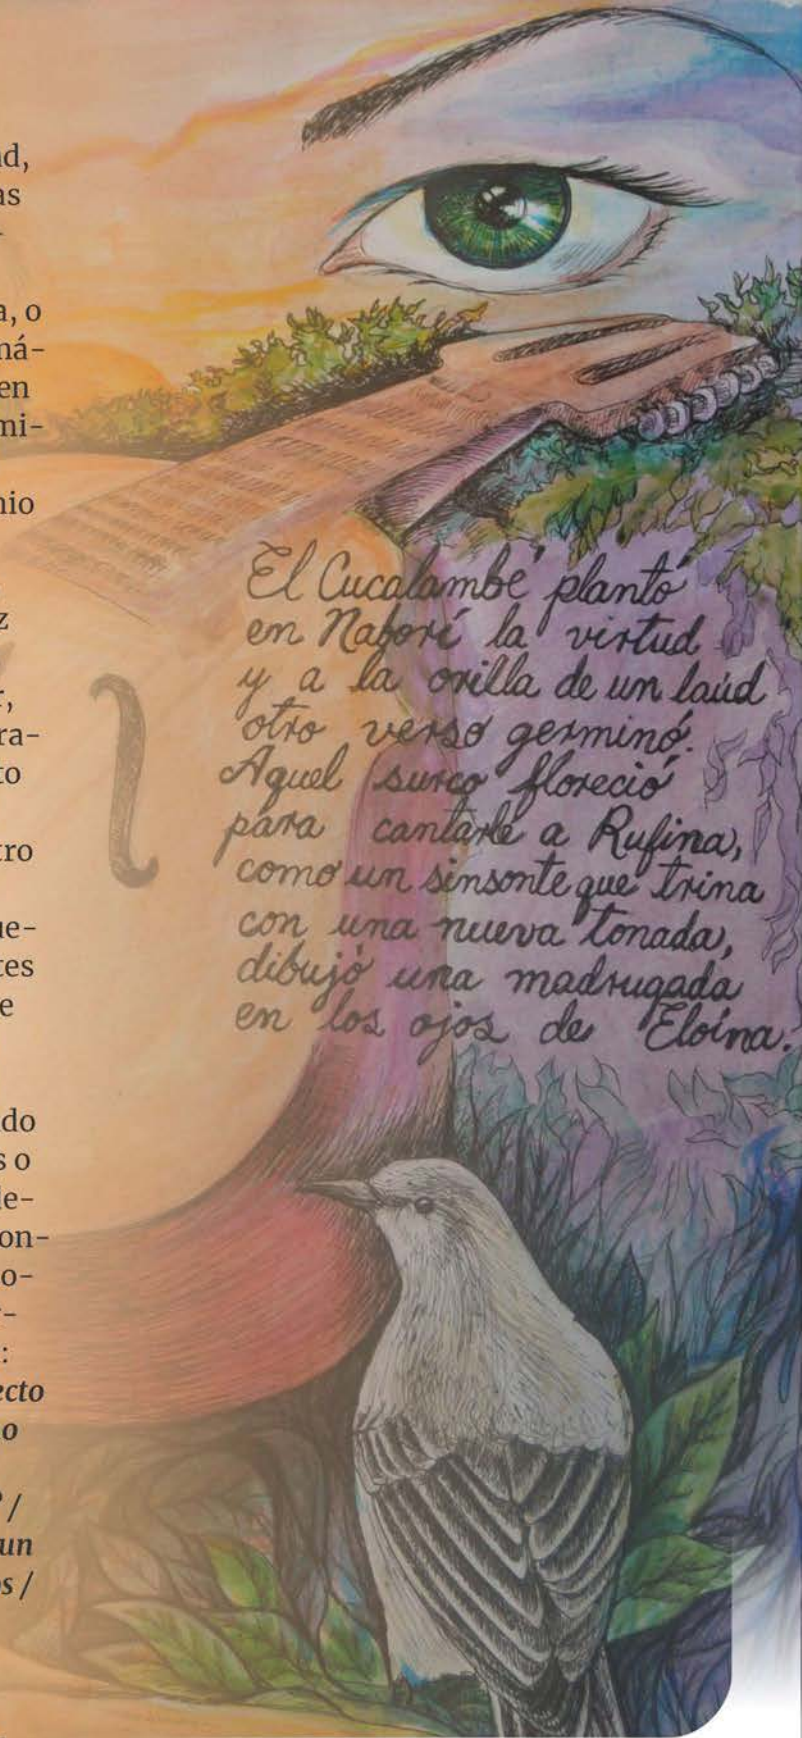 d,
as
-
a, o
má-
en
mi-
nio
z
r,
ra-
to
tro
ue-
tes
e
do
s o
de-
on-
o-
r-
:
ecto
o
/
un
os /
El Cucalambé plantó
en Naborí la virtud
y a la orilla de un laúd
otro verso germinó.
Aquel surco floreció
para cantarle a Rufina,
como un sinsonte que trina
con una nueva tonada,
dibujó una madrugada
en los ojos de Eloína.